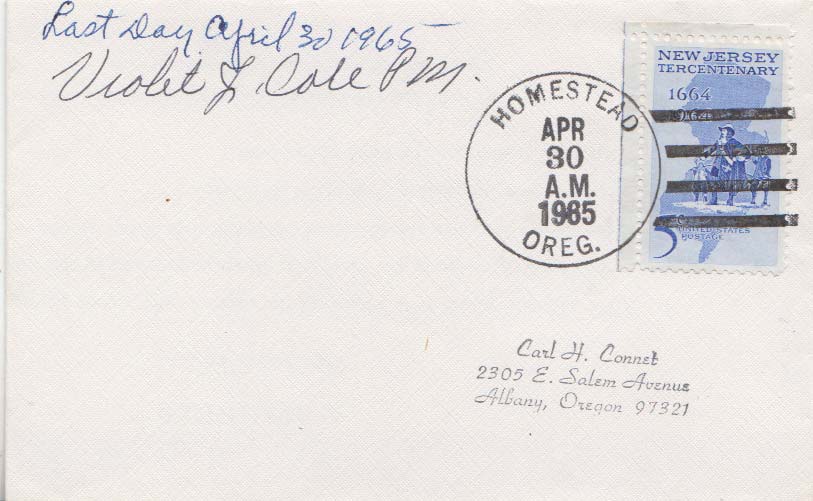 Last Day April 30 1965
Violet L. Cole P.M.
HOMESTEAD
APR
30
A.M.
1965
OREG.
NEW JERSEY
TERCENTENARY
1664
1964
5c
UNITED STATES
POSTAGE
Carl H. Connet
2305 E. Salem Avenue
Albany, Oregon 97321